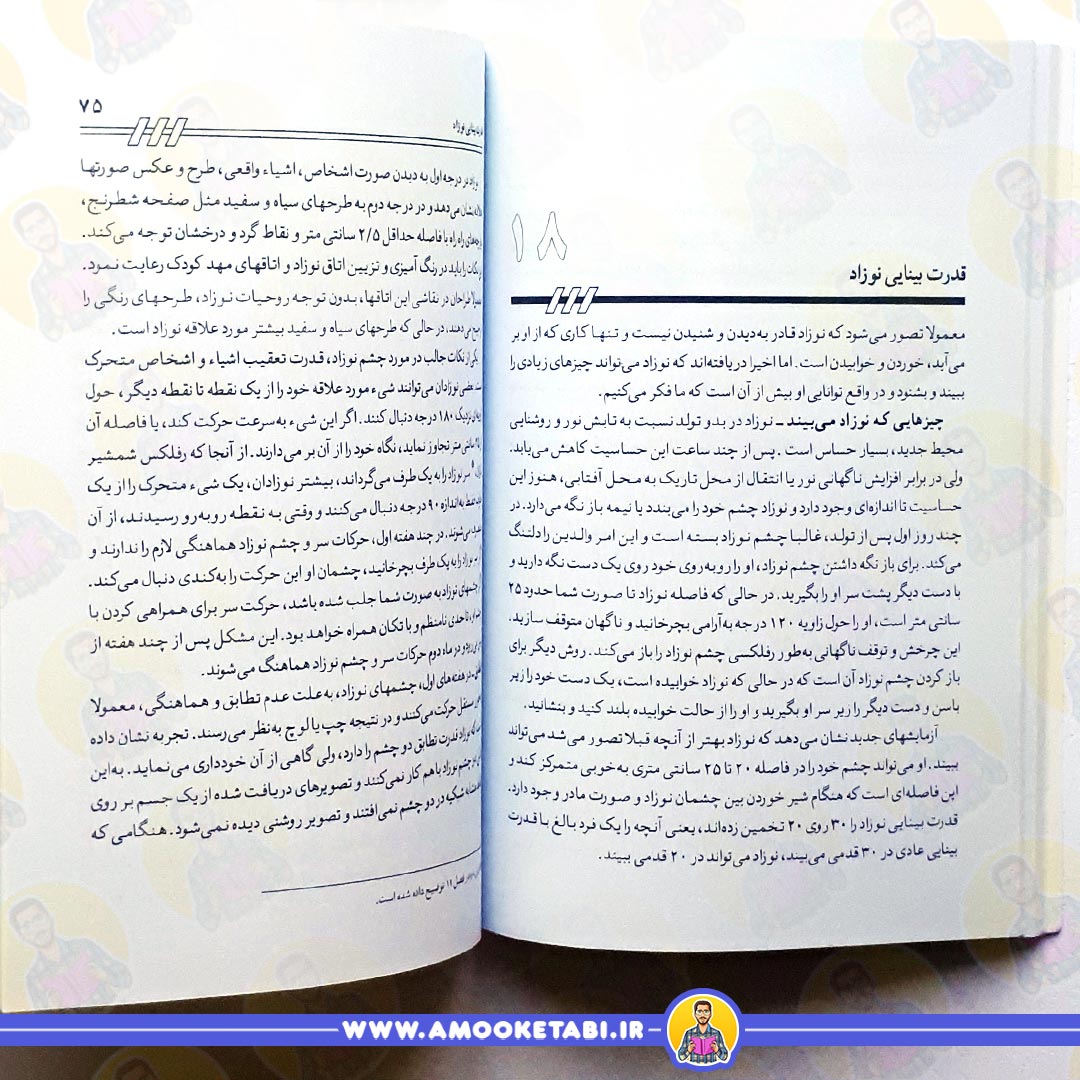 ۱۸
قدرت بینایی نوزاد
معمولا تصور می‌شود که نوزاد قادر به‌دیدن و شنیدن نیست و تنها کاری که از او بر
می‌آید، خوردن و خوابیدن است. اما اخیرا دریافته‌اند که نوزاد می‌تواند چیزهای زیادی را
ببیند و بشنود و در واقع توانایی او بیش از آن است که ما فکر می‌کنیم.
چیزهایی که نوزاد می‌بیند ـ نوزاد در بدو تولد نسبت به تابش نور و روشنایی
محیط جدید، بسیار حساس است. پس از چند ساعت این حساسیت کاهش می‌یابد.
ولی در برابر افزایش ناگهانی نور یا انتقال از محل تاریک به محل آفتابی، هنوز این
حساسیت تا اندازه‌ای وجود دارد و نوزاد چشم خود را می‌بندد یا نیمه باز نگه می‌دارد. در
چند روز اول پس از تولد، غالبا چشم نوزاد بسته است و این امر والدین را دلتنگ
می‌کند. برای باز نگه داشتن چشم نوزاد، او را روبه‌روی خود روی یک دست نگه دارید و
با دست دیگر پشت سر او را بگیرید. در حالی که فاصله نوزاد تا صورت شما حدود ۲۵
سانتی متر است، او را حول زاویه ۱۲۰ درجه به‌آرامی بچرخانید و ناگهان متوقف سازید.
این چرخش و توقف ناگهانی به‌طور رفلکسی چشم نوزاد را باز می‌کند. روش دیگر برای
باز کردن چشم نوزاد آن است که در حالی که نوزاد خوابیده است، یک دست خود را زیر
باسن و دست دیگر را زیر سر او بگیرید و او را از حالت خوابیده بلند کنید و بنشانید.
آزمایشهای جدید نشان می‌دهد که نوزاد بهتر از آنچه قبلا تصور می‌شد می‌تواند
ببیند. او می‌تواند چشم خود را در فاصله ۲۰ تا ۲۵ سانتی متری به‌خوبی متمرکز کند و
این فاصله‌ای است که هنگام شیر خوردن بین چشمان نوزاد و صورت مادر وجود دارد.
قدرت بینایی نوزاد را ۳۰ روی ۲۰ تخمین زده‌اند، یعنی آنچه را یک فرد بالغ با قدرت
بینایی عادی در ۳۰ قدمی می‌بیند، نوزاد می‌تواند در ۲۰ قدمی ببیند.
بینایی نوزاد
۷۵
در درجه اول به دیدن صورت اشخاص، اشیاء واقعی، طرح و عکس صورتها
نشان می‌دهد و در درجه دوم به طرحهای سیاه و سفید مثل صفحه شطرنج،
راه راه با فاصله حداقل ۲/۵ سانتی متر و نقاط گرد و درخشان توجه می‌کند.
نکات را باید در رنگ آمیزی و تزیین اتاق نوزاد و اتاقهای مهد کودک رعایت نمود.
طراحان در نقاشی این اتاقها، بدون توجه روحیات نوزاد، طرحهای رنگی را
می‌دهند، در حالی که طرحهای سیاه و سفید بیشتر مورد علاقه نوزاد است.
یکی از نکات جالب در مورد چشم نوزاد، قدرت تعقیب اشیاء و اشخاص متحرک
بعضی نوزادان می‌توانند شیء مورد علاقه خود را از یک نقطه تا نقطه دیگر، حول
نزدیک ۱۸۰ درجه دنبال کنند. اگر این شیء به‌سرعت حرکت کند، یا فاصله آن
سانتی متر تجاوز نماید، نگاه خود را از آن بر می‌دارند. از آنجا که رفلکس شمشیر
سر نوزاد را به یک طرف می‌گرداند، بیشتر نوزادان، یک شیء متحرک را از یک
فقط به‌اندازه ۹۰ درجه دنبال می‌کنند و وقتی به نقطه روبه‌رو رسیدند، از آن
می‌شوند. در چند هفته اول، حرکات سر و چشم نوزاد هماهنگی لازم را ندارند و
نوزاد را به یک طرف بچرخانید، چشمان او این حرکت را به‌کندی دنبال می‌کند.
چشمهای نوزاد به صورت شما جلب شده باشد، حرکت سر برای همراهی کردن با
تا حدی نامنظم و با تکان همراه خواهد بود. این مشکل پس از چند هفته از
و در ماه دوم حرکات سر و چشم نوزاد هماهنگ می‌شوند.
در هفته‌های اول، چشمهای نوزاد، به‌علت عدم تطابق و هماهنگی، معمولا
مستقل حرکت می‌کنند و در نتیجه چپ یا لوچ به‌نظر می‌رسند. تجربه نشان داده
نوزاد قدرت تطابق دو چشم را دارد، ولی گاهی از آن خودداری می‌نماید. به‌این
چشم نوزاد با هم کار نمی‌کنند و تصویرهای دریافت شده از یک جسم بر روی
مشابه شبکیه در دو چشم نمی‌افتند و تصویر روشنی دیده نمی‌شود. هنگامی که
فصل ۱۱ توضیح داده شده است.
WWW.AMOOKETABI.IR